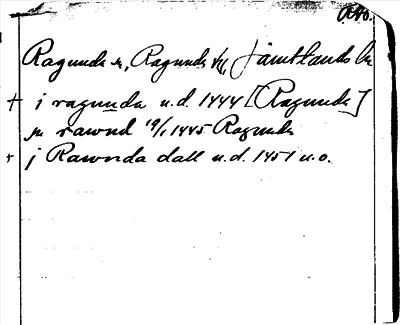 RAO.
Ragunda sn, Ragunda tg, Jämtlands län
+ j ragunda u.d. 1444 [Ragunda]
sn rawnd 19/1 1445 Ragunda
+ j Rawnda dall u.d. 1451 u.o.